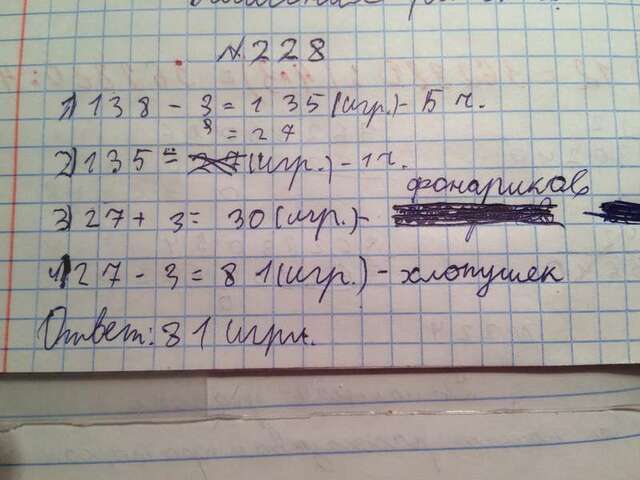 №228
1) 138 - 3 = 135 (игр.) - 5 ч.
2) 135 : 5 = 27 (игр.) - 1 ч.
3) 27 + 3 = 30 (игр.) - фонариков
4) 27 · 3 = 81 (игр.) - хлопушек
Ответ: 81 игруш.